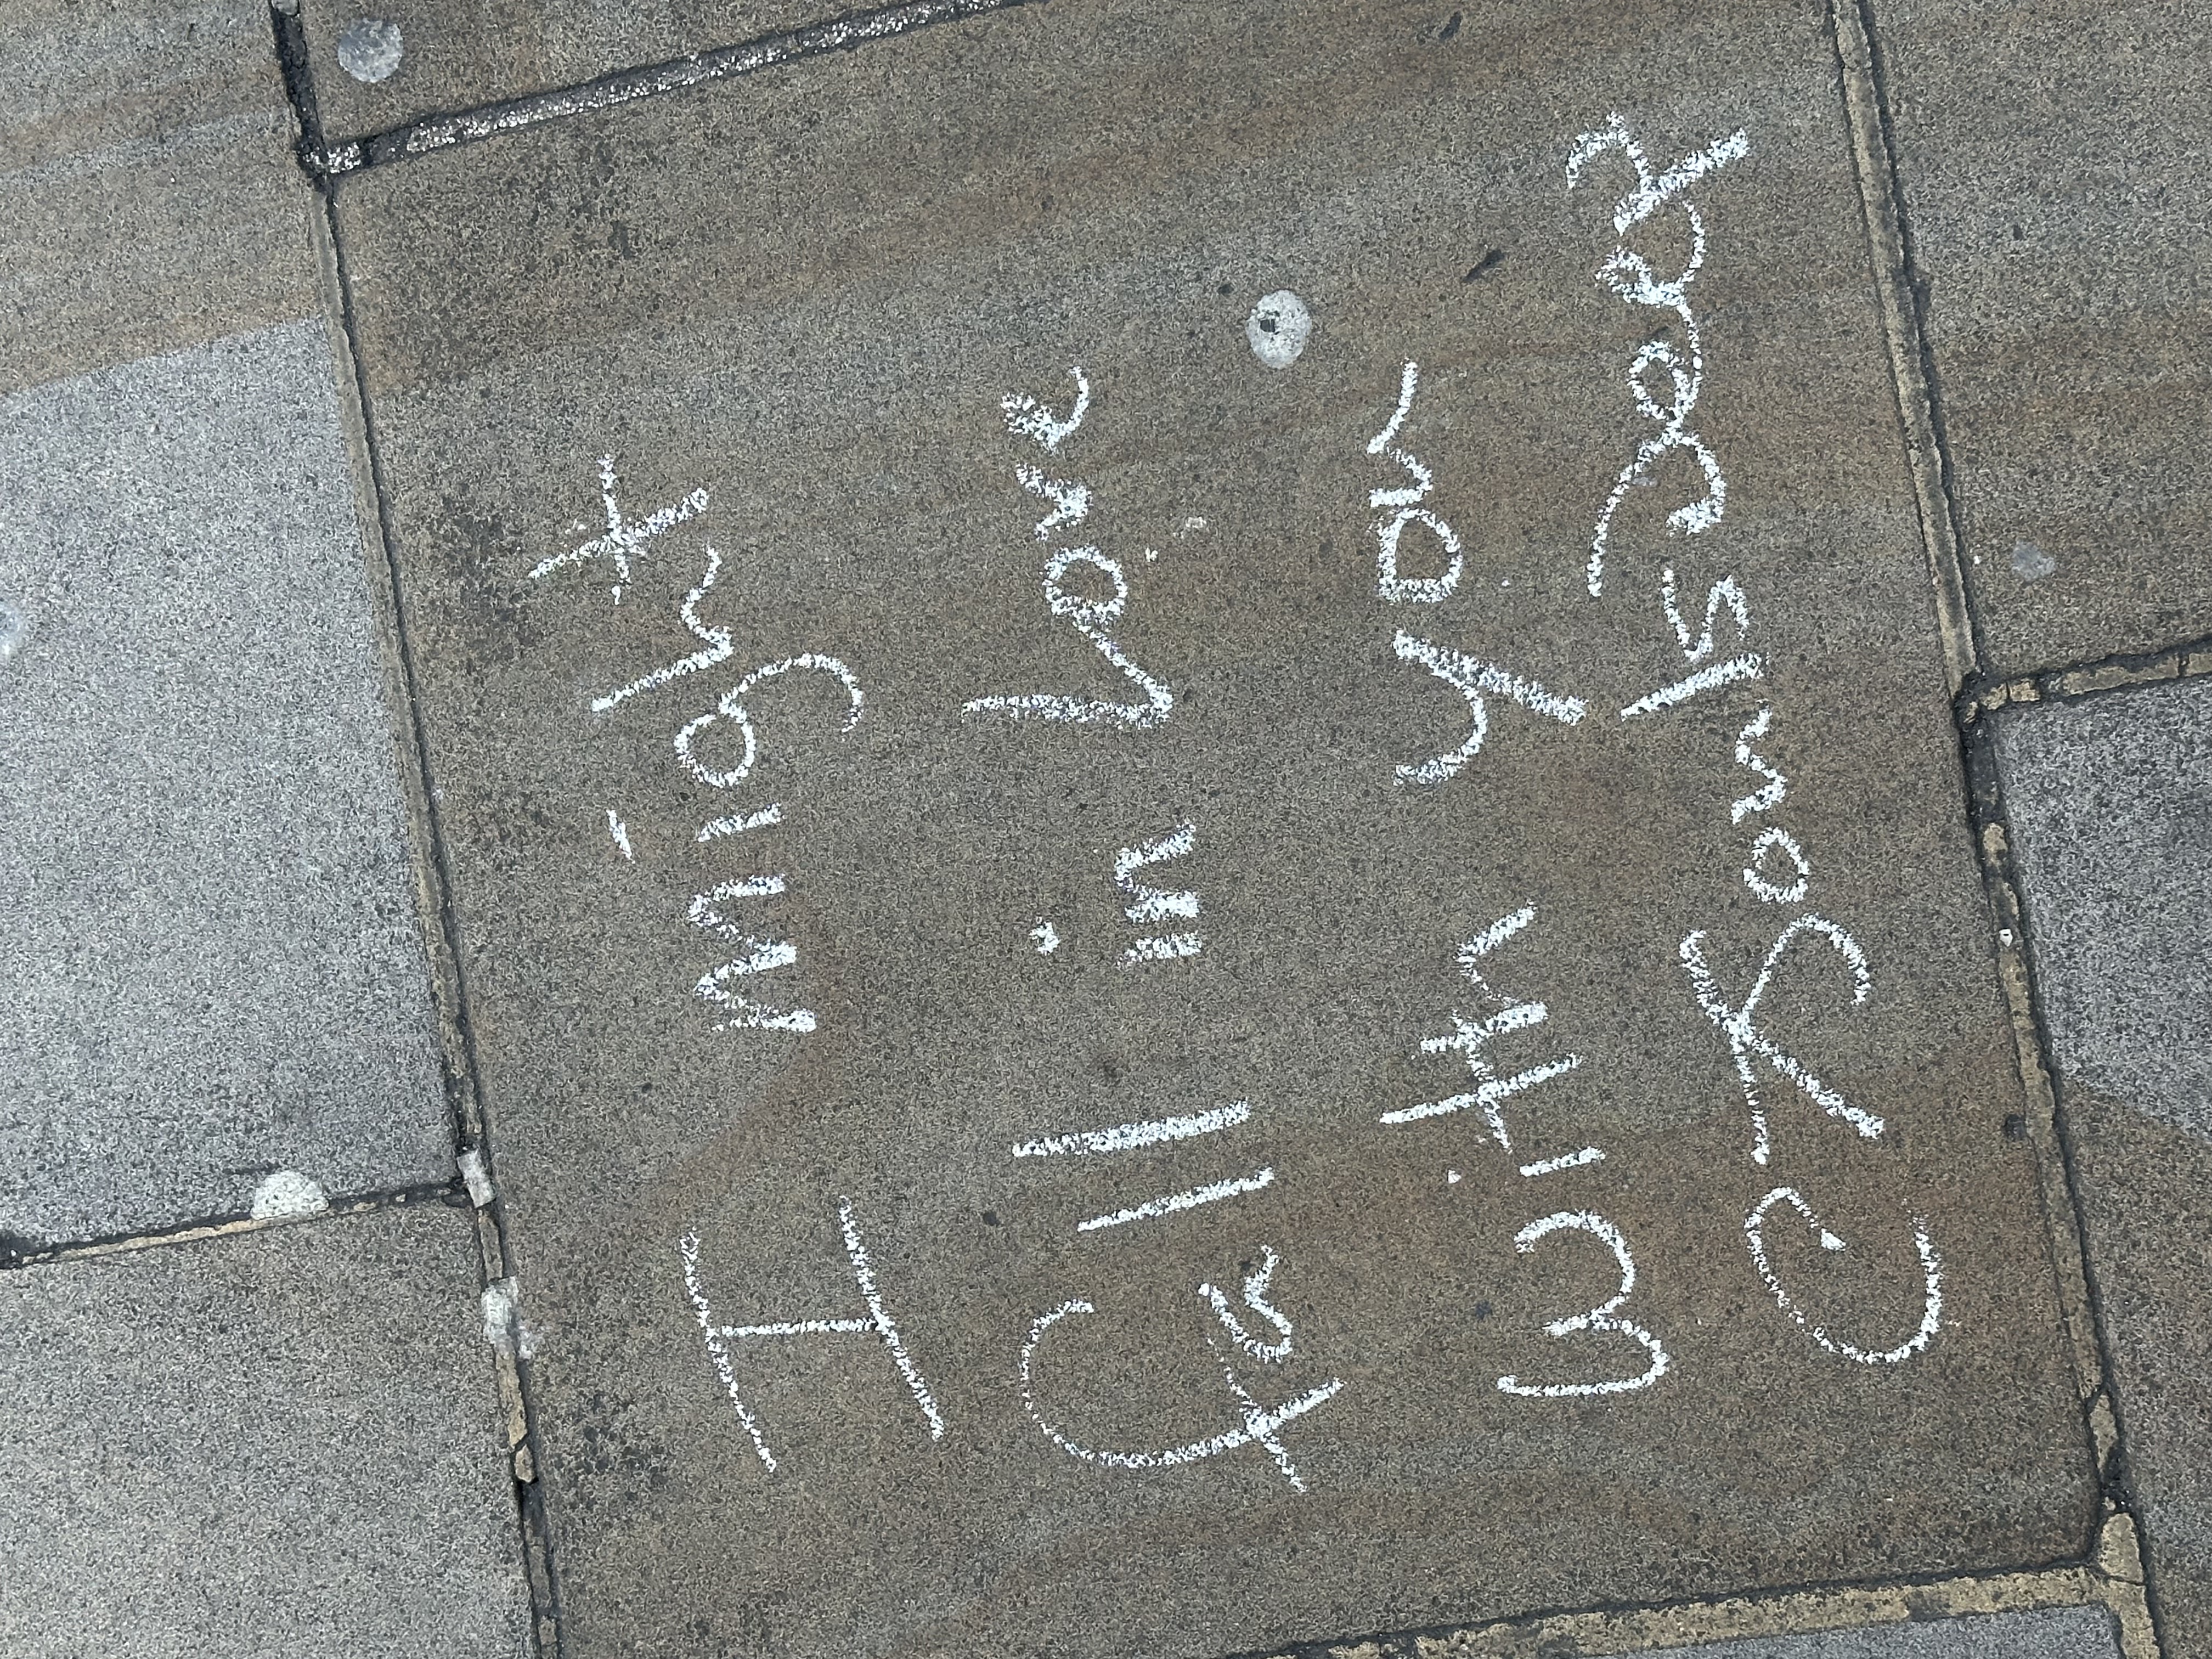 I might
Fall in Love
with you